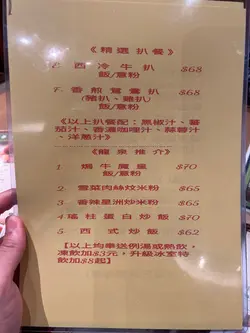 《精選扒餐》
E. 西冷牛扒 $68
飯/意粉
F. 香煎鴛鴦扒 $68
(豬扒、雞扒)
飯/意粉
《以上扒餐配：黑椒汁、蕃
茄汁、香濃咖喱汁、蒜蓉汁
、洋葱汁》
《龍泉推介》
1. 焗牛魔皇 $70
飯/意粉
2. 雪菜肉絲炆米粉 $65
3. 香辣星洲炒米粉 $65
4. 瑤柱蛋白炒飯 $70
5. 西式炒飯 $62
【以上均奉送例湯或熱飲，
凍飲加$3元，升級冰室特
飲加$8起】